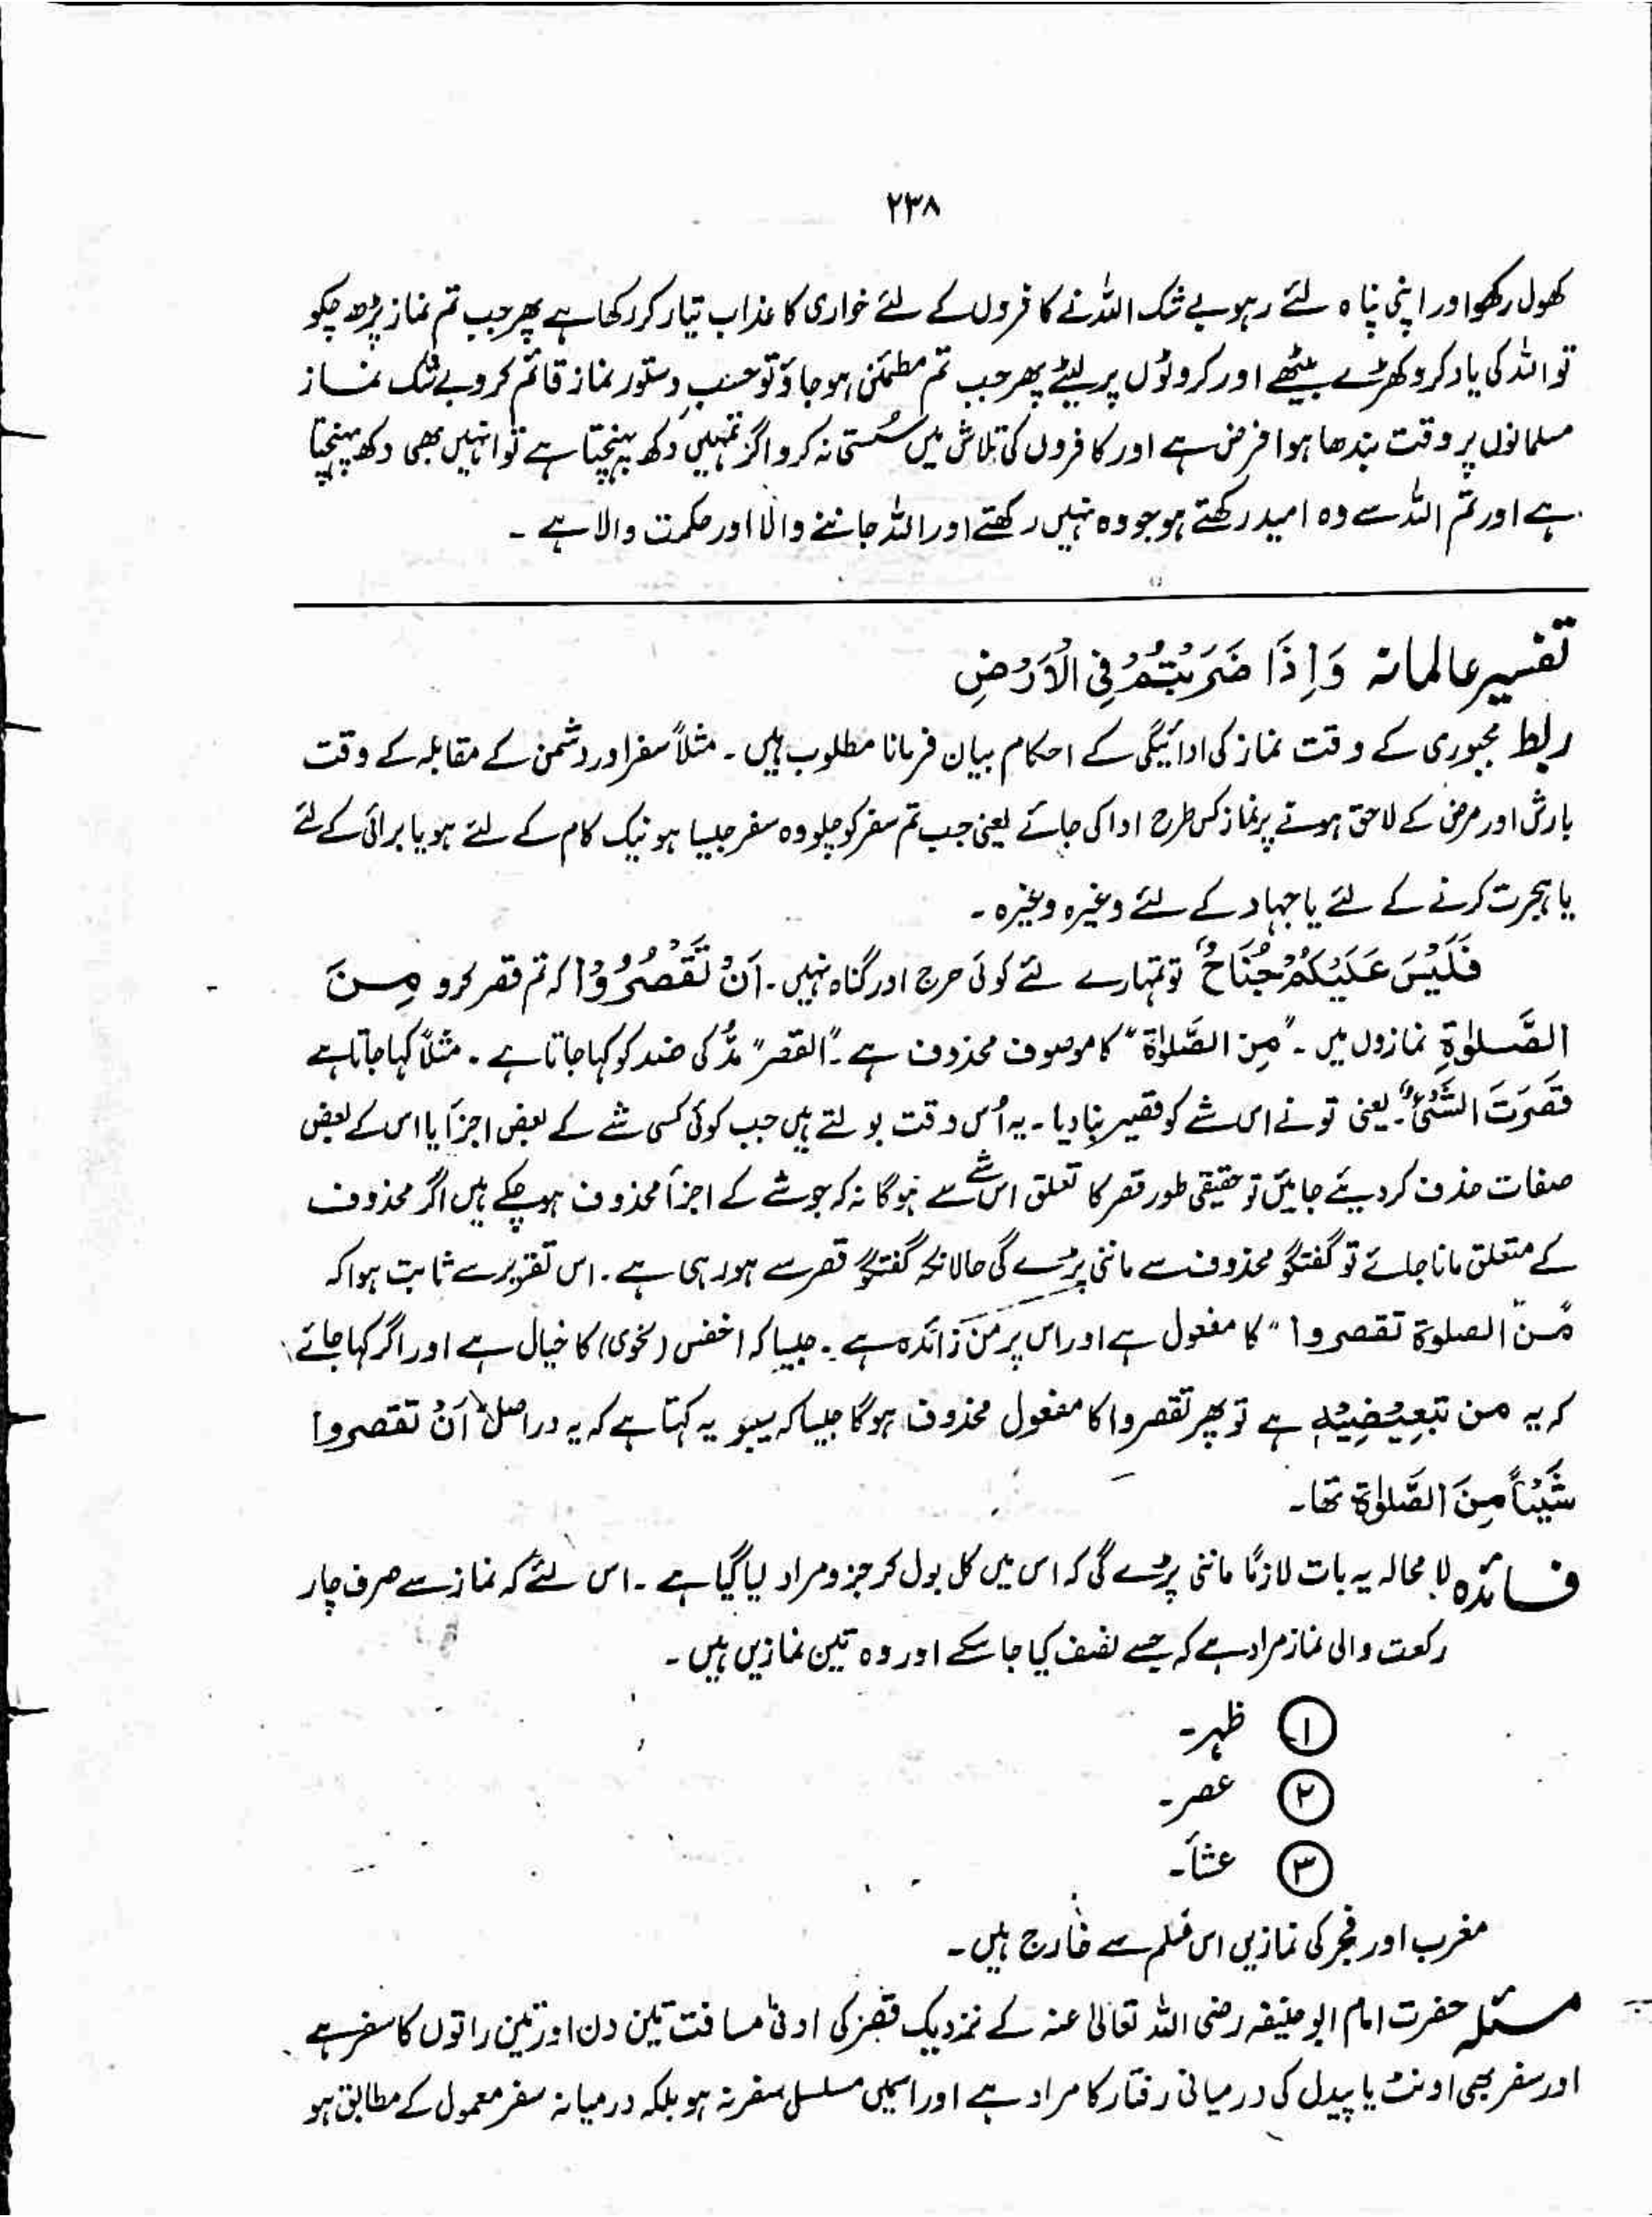 ۲۳۸
کھول رکھو اور اپنی پناہ لئے رہو بے شک اللہ نے کافروں کے لئے خواری کا عذاب تیار کر رکھا ہے پھر جب تم نماز پڑھ چکو
تو اللہ کی یاد کرو کھڑے بیٹھے اور کروٹوں پر لیٹے پھر جب تم مطمئن ہو جاؤ تو حسب دستور نماز قائم کرو بے شک نماز
مسلمانوں پر وقت بندھا ہوا فرض ہے اور کافروں کی تلاش میں سُستی نہ کرو اگر تمہیں دکھ پہنچتا ہے تو انہیں بھی دکھ پہنچتا
ہے اور تم اللہ سے وہ امید رکھتے ہو جو وہ نہیں رکھتے اور اللہ جاننے والا اور حکمت والا ہے ۔
تفسیر عالمانہ وَاِذَا ضَرَبْتُمْ فِی الْاَرْضِ
ربط مجبوری کے وقت نماز کی ادائیگی کے احکام بیان فرمانا مطلوب ہیں ۔ مثلاً سفر اور دشمن کے مقابلہ کے وقت
بارش اور مرض کے لاحق ہونے پر نماز کس طرح ادا کی جائے یعنی جب تم سفر کو چلو وہ سفر جیسا ہو نیک کام کے لئے ہو یا برائی کے لئے
یا ہجرت کرنے کے لئے یا جہاد کے لئے وغیرہ وغیرہ ۔
فَلَیْسَ عَلَیْکُمْ جُنَاحٌ تو تمہارے لئے کوئی حرج اور گناہ نہیں ۔ اَنْ تَقْصُرُوْا کہ تم قصر کرو مِنَ
الصَّلٰوۃِ نمازوں میں ۔ "مِنَ الصَّلٰوۃ" کا موصوف محذوف ہے ۔ "القصر" مدّ کی ضد کو کہا جاتا ہے ۔ مثلاً کہا جاتا ہے
قَصَرْتَ الشَّیْءَ"۔ یعنی تو نے اس شے کو قصیر بنا دیا ۔ یہ اُس وقت بولتے ہیں جب کوئی کسی شے کے بعض اجزأ یا اس کے بعض
صفات حذف کر دیئے جایئں تو حقیقی طور قصر کا تعلق اس شے سے ہوگا نہ کہ جو شے کے اجزأ محذوف ہو چکے ہیں اگر محذوف
کے متعلق مانا جائے تو گفتگو محذوف سے ماننی پڑے گی حالانکہ گفتگو قصر سے ہو رہی ہے ۔ اس تقریر سے ثابت ہوا کہ
"مّن الصلوۃ تقصروا" کا مفعول ہے اور اس پر من زائدہ ہے ۔ جیسا کہ اخفش (نحوی) کا خیال ہے اور اگر کہا جائے
کہ یہ من تبعِیْضِیْہ ہے تو پھر تقصروا کا مفعول محذوف ہوگا جیسا کہ سیبویہ کہتا ہے کہ یہ دراصل "اَنْ تقصروا
شَیْئاً مِنَ الصَّلٰوۃ تھا۔
فائدہ لامحالہ یہ بات لازمًا ماننی پڑے گی کہ اس میں کل بول کر جزو مراد لیا گیا ہے ۔ اس لئے کہ نماز سے صرف چار
رکعت والی نماز مراد ہے کہ جسے نصف کیا جا سکے اور وہ تین نمازیں ہیں ۔
۱ ظہر ۔
۲ عصر ۔
۳ عشأ ۔
مغرب اور فجر کی نمازیں اس حکم سے خارج ہیں ۔
مسئلہ حضرت امام ابو حنیفہ رضی اللہ تعالیٰ عنہ کے نزدیک قصر کی ادنیٰ مسافت تین دن اور تین راتوں کا سفر ہے
اور سفر بھی اونٹ یا پیدل کی درمیانی رفتار کا مراد ہے اور اسمیں مسلسل سفر نہ ہو بلکہ درمیانہ سفر معمول کے مطابق ہو